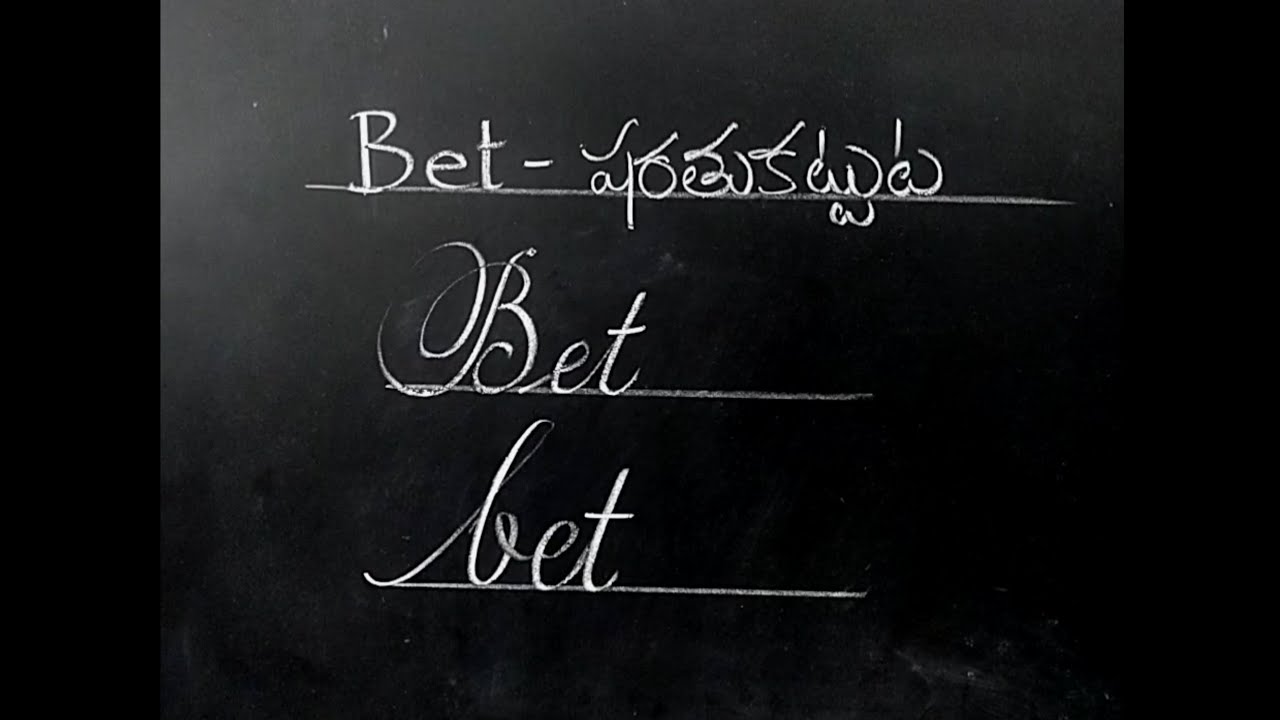 Bet - షరతుకట్టుట
Bet
bet